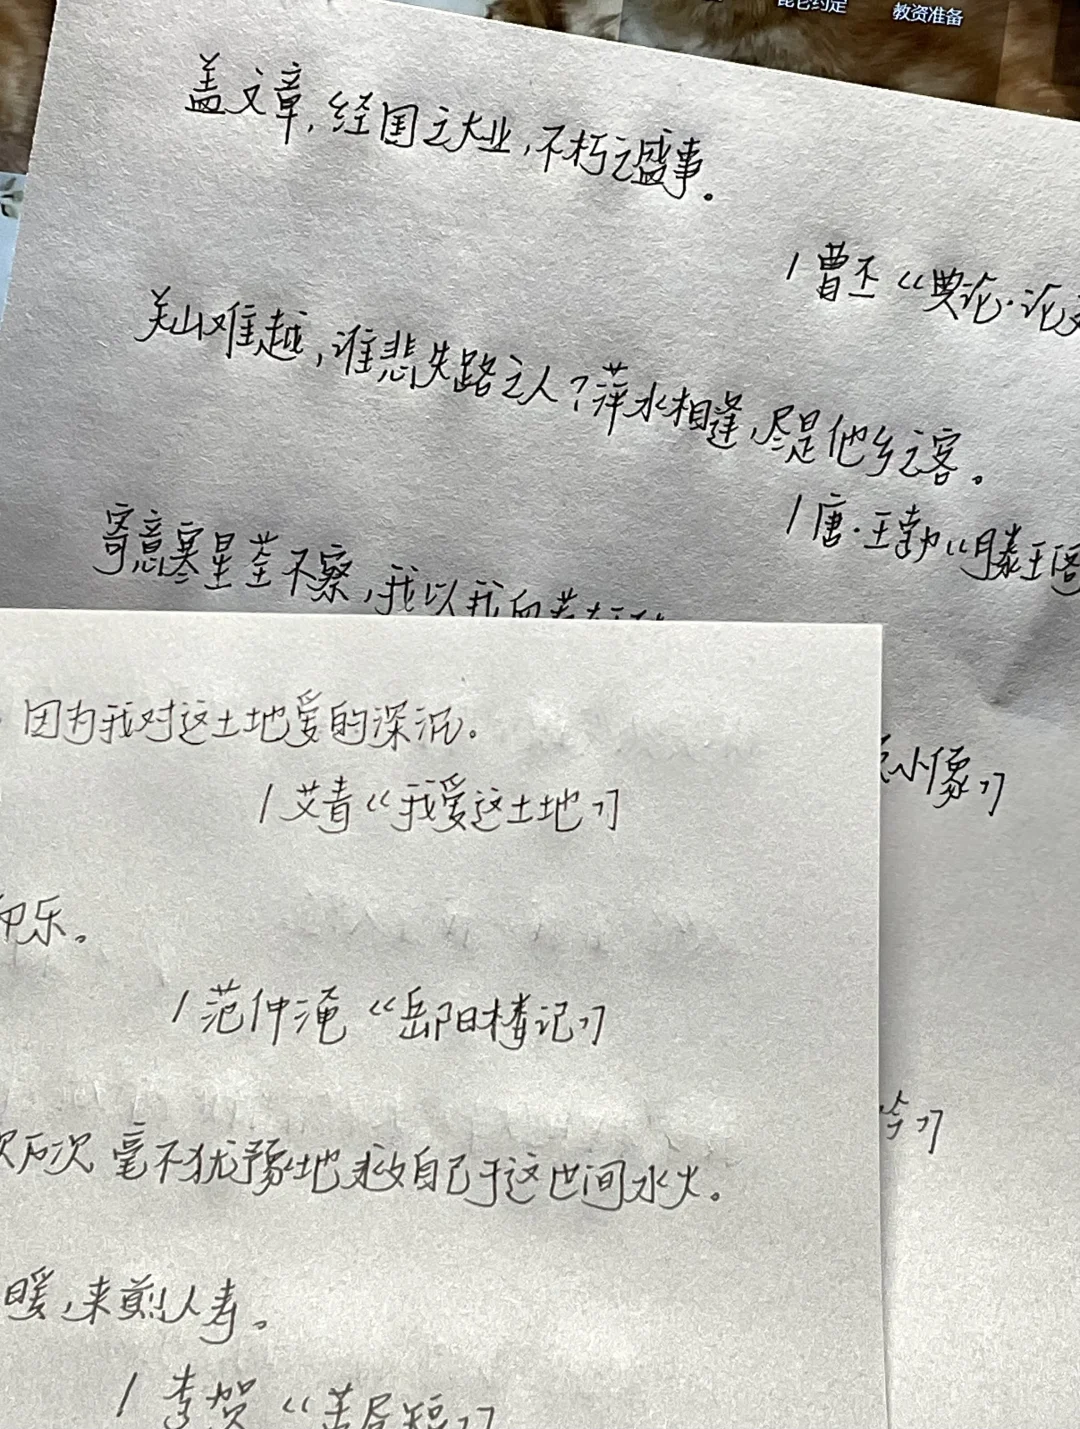 昆仑约定 教资准备
盖文章,经国之大业,不朽之盛事。
/曹丕《典论·论文
关山难越,谁悲失路之人?萍水相逢,尽是他乡之客。
/唐·王勃《滕王阁
寄意寒星荃不察,我以我血荐
小像》
吟》
因为我对这土地爱的深沉。
/艾青《我爱这土地》
乐。
/范仲淹《岳阳楼记》
次万次 毫不犹豫地 救自己于这世间水火。
暖,来煎人寿。
/李贺《苦昼短》